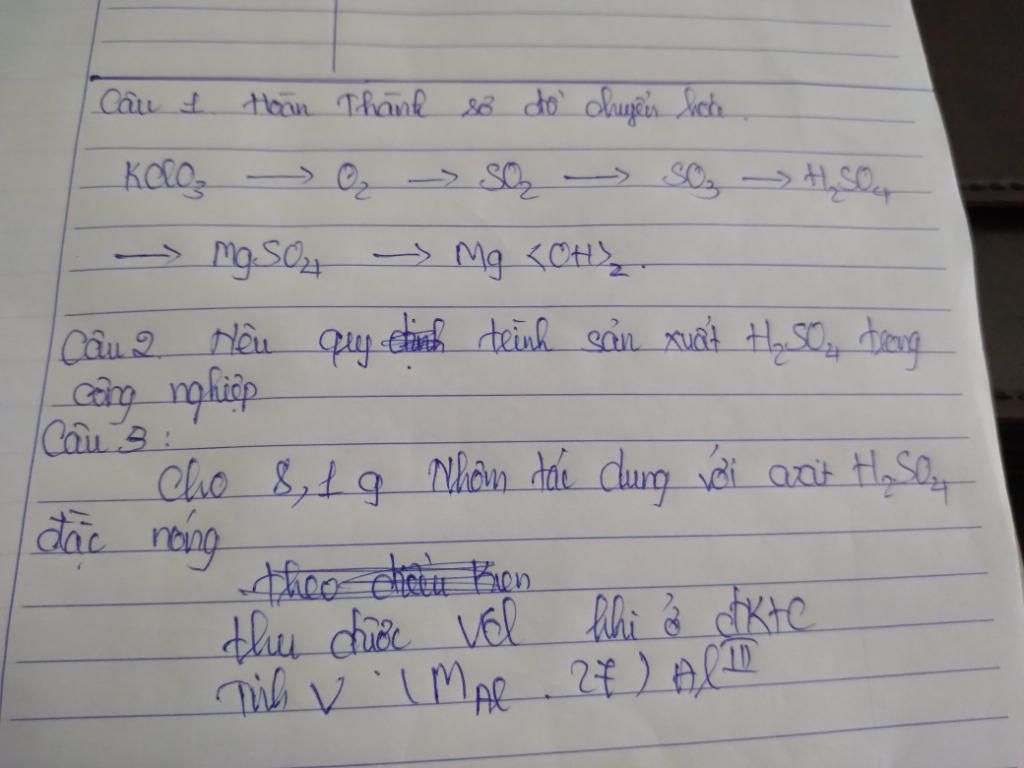 Câu 1 Hoàn Thành sơ đồ chuyển hoá.
KClO3 → O2 → SO2 → SO3 → H2SO4
→ MgSO4 → Mg <OH>2.
Câu 2. Nêu quy trình sản xuất H2SO4 trong
công nghiệp
Câu 3:
Cho 8,1 g Nhôm tác dung với axit H2SO4
đặc nóng
thu được Vél khi ở đktc
Tính V (MAl . 27) AlIII